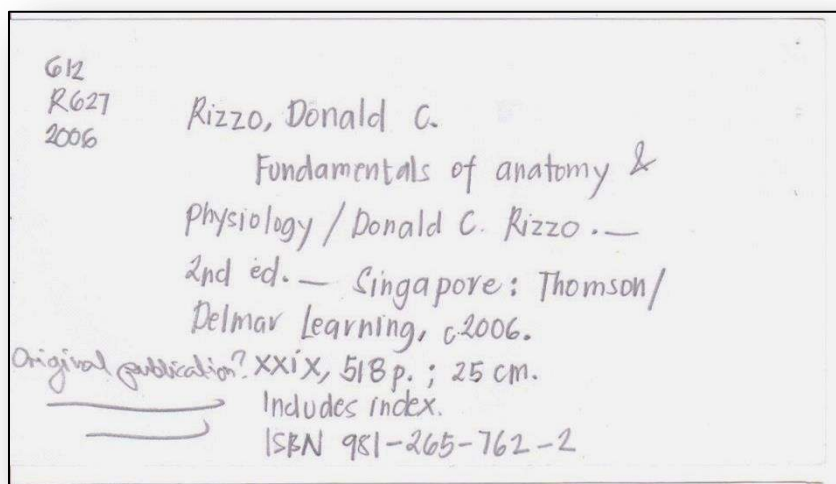 612
R627
2006
Rizzo, Donald C.
Fundamentals of anatomy &
Physiology / Donald C. Rizzo. —
2nd ed. — Singapore: Thomson/
Delmar Learning, c2006.
Original publication? xxix, 518 p. ; 25 cm.
Includes index.
ISBN 981-265-762-2